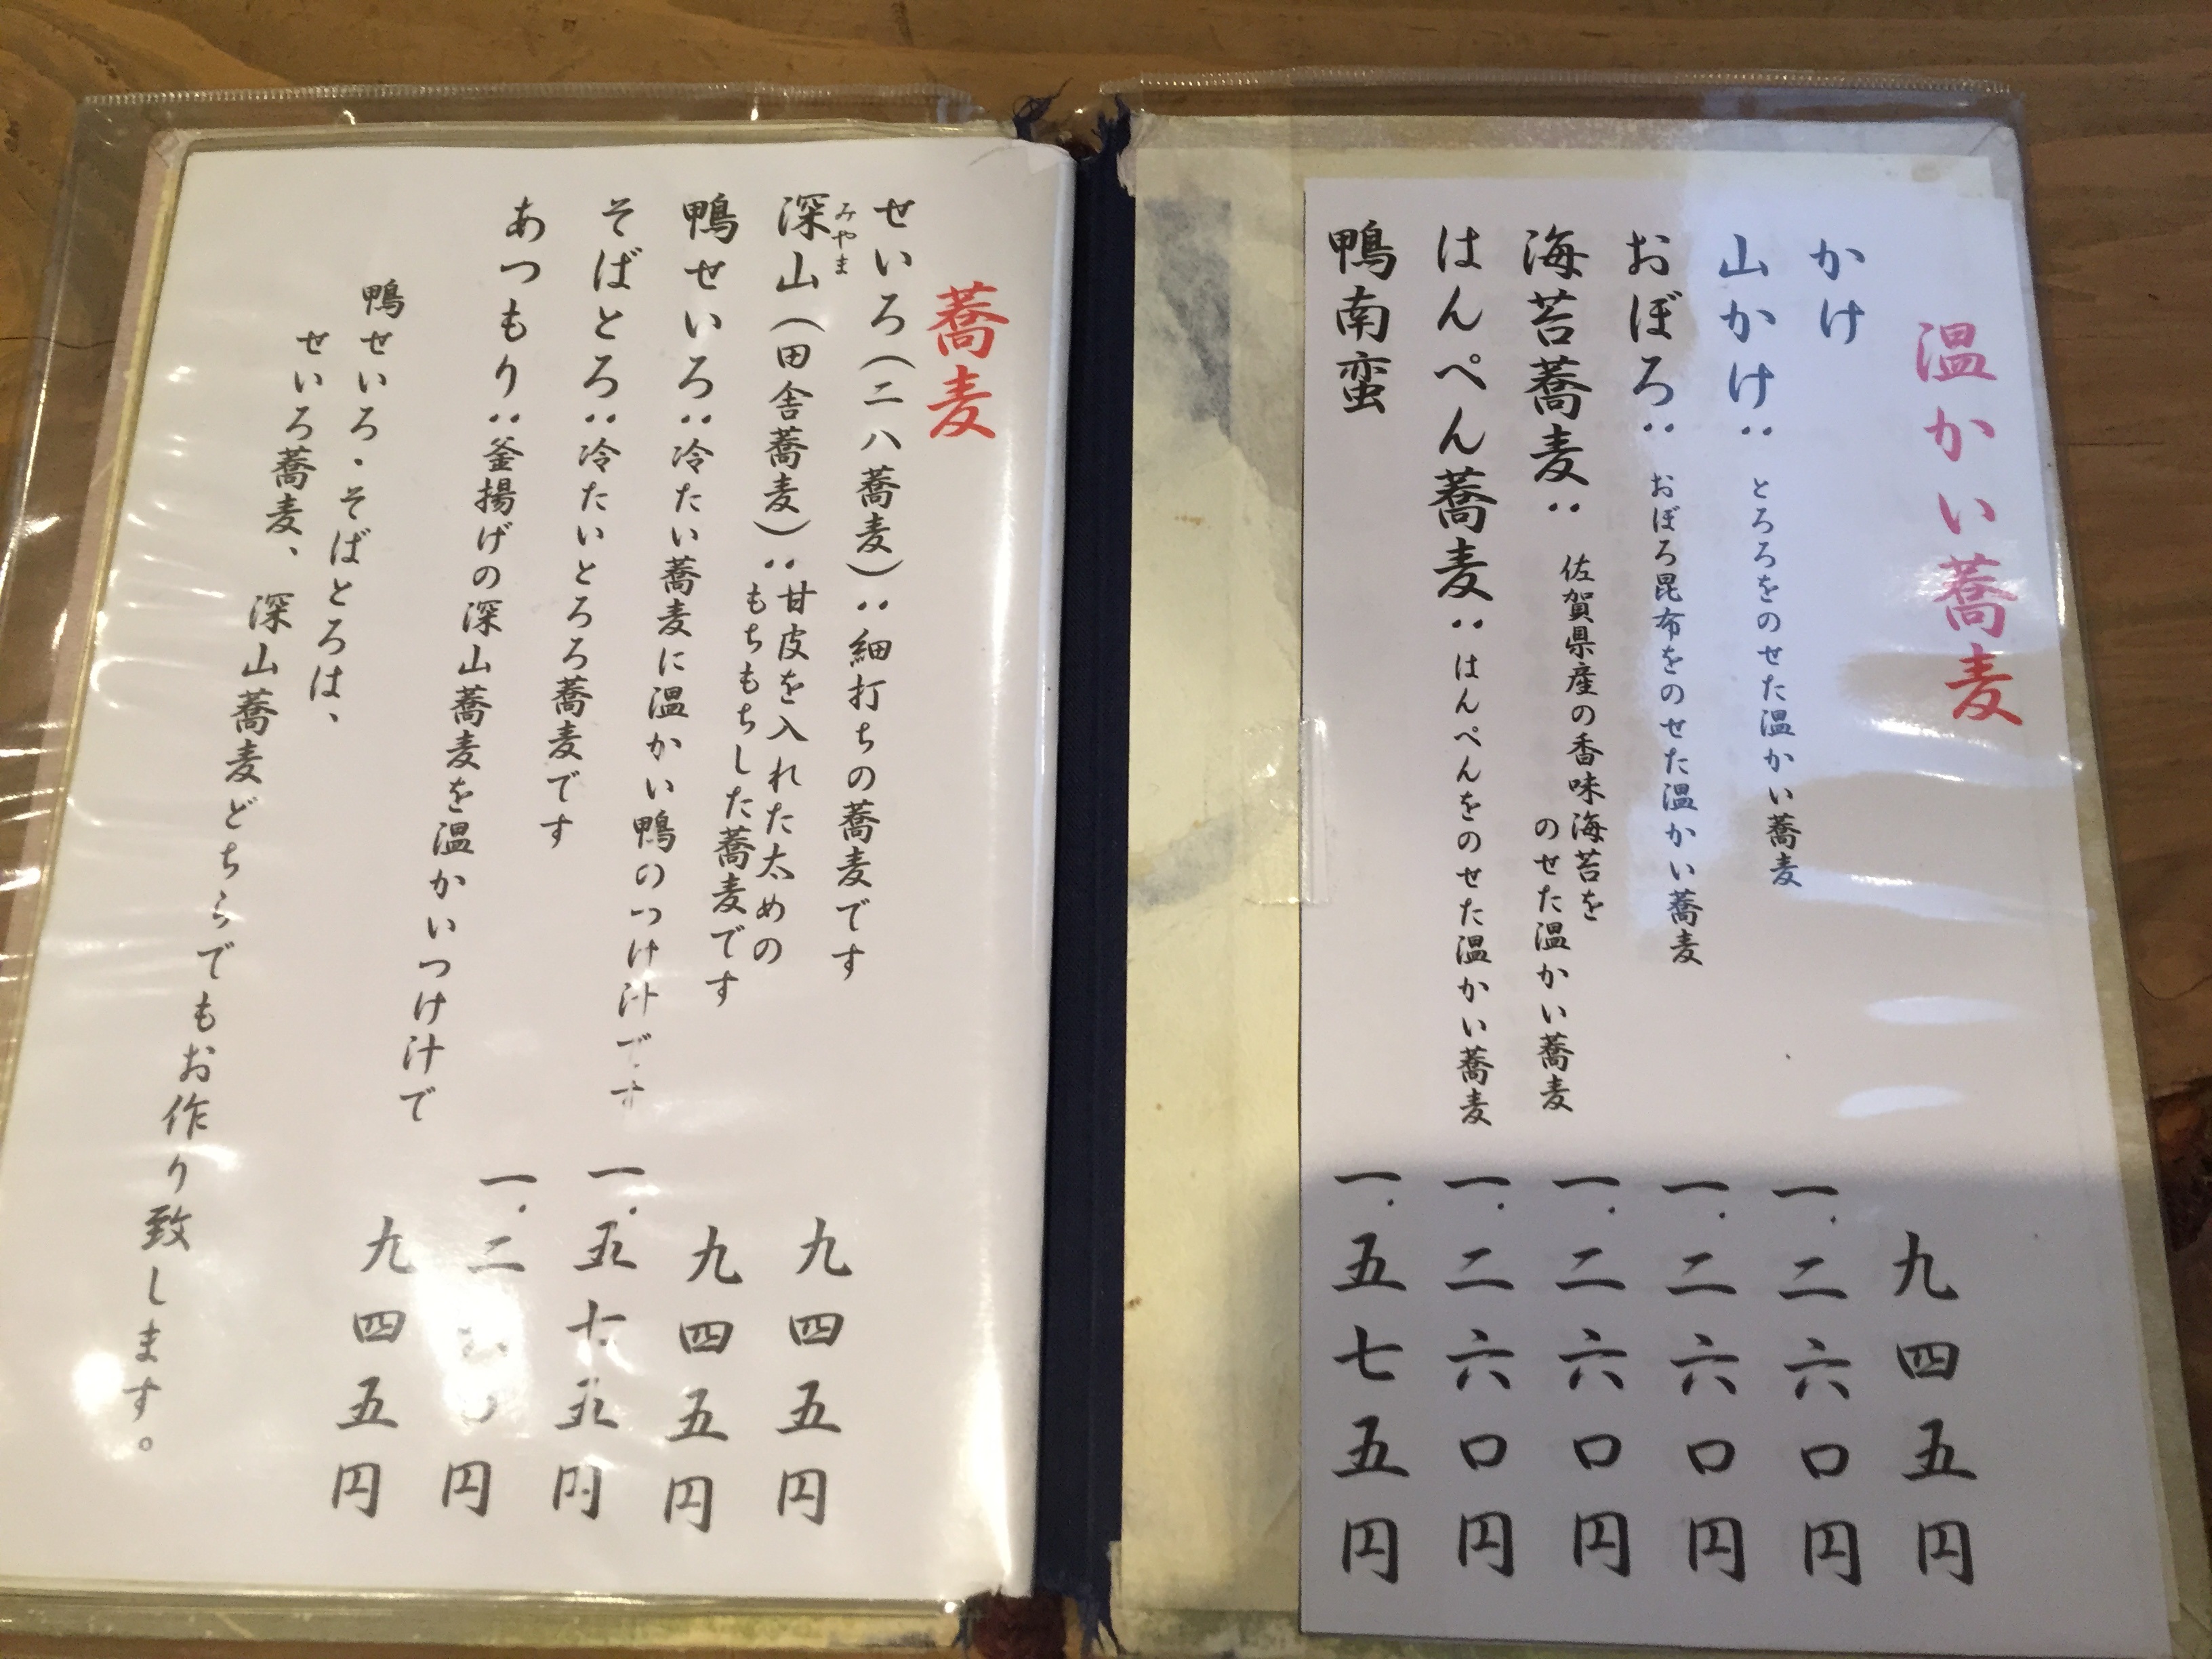 温かい蕎麦
かけ 九四五円
山かけ：とろろをのせた温かい蕎麦 一.二六〇円
おぼろ：おぼろ昆布をのせた温かい蕎麦 一.二六〇円
海苔蕎麦：佐賀県産の香味海苔を
のせた温かい蕎麦 一.二六〇円
はんぺん蕎麦：はんぺんをのせた温かい蕎麦 一.二六〇円
鴨南蛮 一.五七五円
蕎麦
せいろ（二八蕎麦）：細打ちの蕎麦です 九四五円
みやま
深山（田舎蕎麦）：甘皮を入れた太めの
もちもちした蕎麦です 九四五円
鴨せいろ：冷たい蕎麦に温かい鴨のつけ汁です 一.五七五円
そばとろ：冷たいとろろ蕎麦です 一.二 円
あつもり：釜揚げの深山蕎麦を温かいつけ汁で 九四五円
鴨せいろ・そばとろは、
せいろ蕎麦、深山蕎麦どちらでもお作り致します。